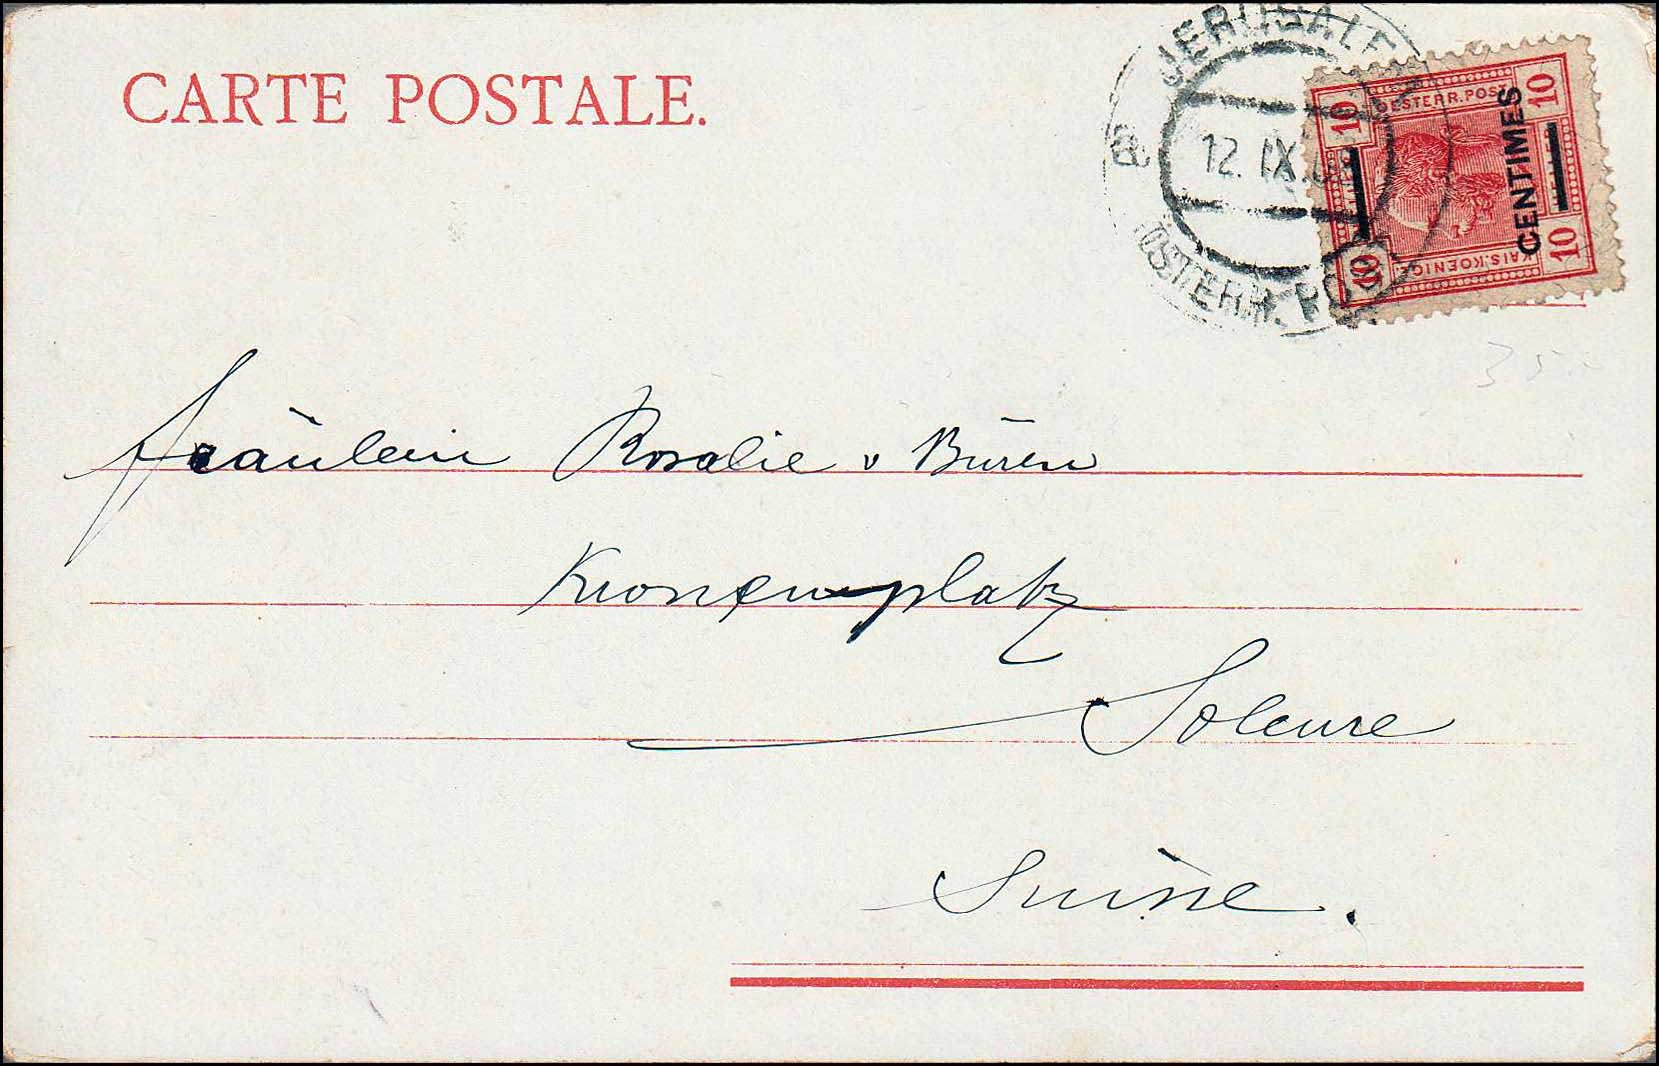 CARTE POSTALE.
JERUSALEM
12. IX. 0
ÖSTERR. POST
OESTERR.POST
10 10 10 10
CENTIMES
KAIS.KOENIG.
35.-
Fräulein Rosalie v Büren
Kronenplatz
Soleure
Suisse.